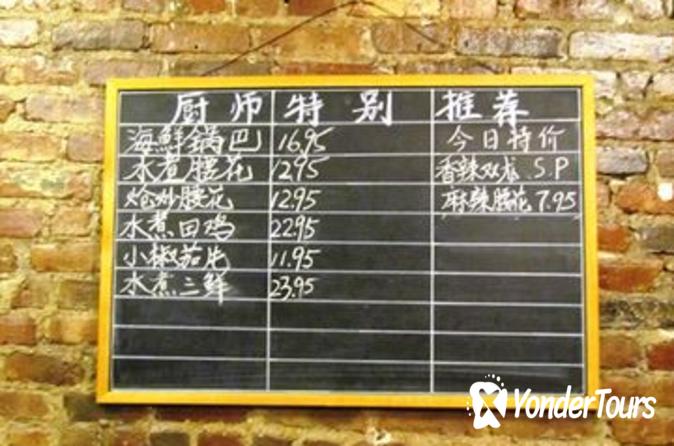 厨师特别推荐
海鲜锅巴 16.95 今日特价
水煮腰花 12.95 香辣双龙 S.P
炝炒腰花 12.95 麻辣腰花 7.95
水煮田鸡 22.95
小椒茄片 11.95
水煮三鲜 23.95
YonderTours